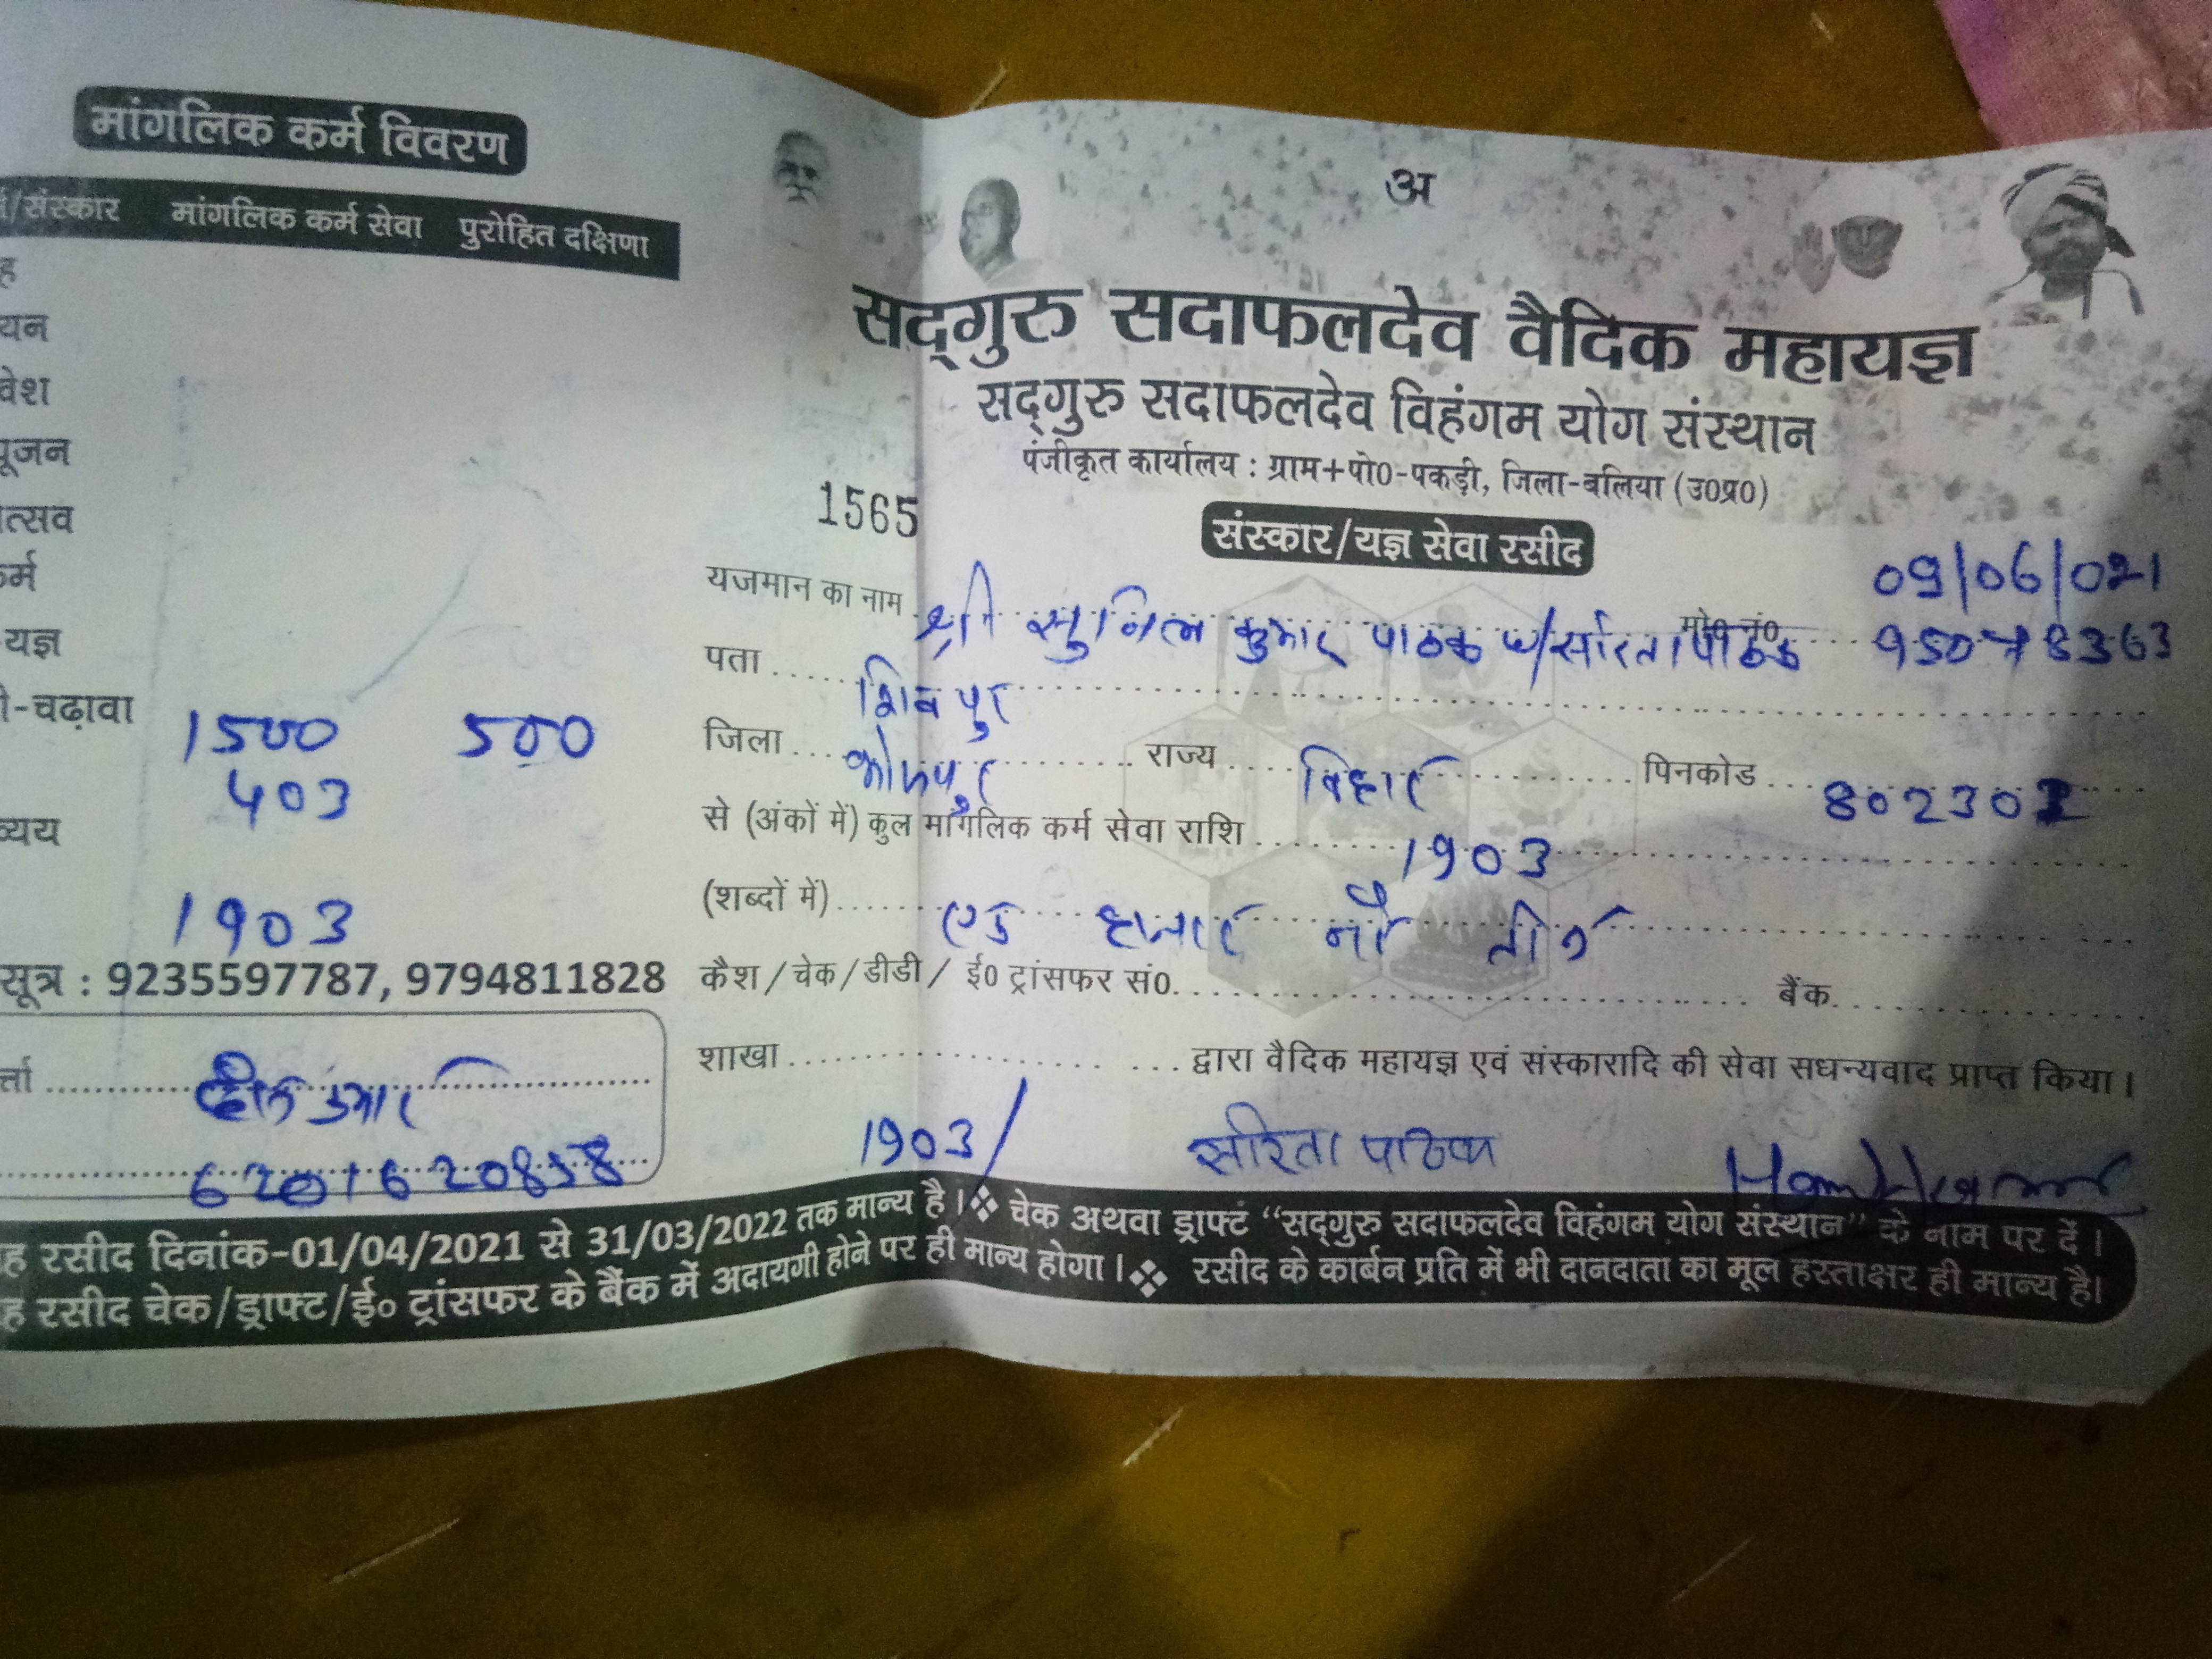 मांगलिक कर्म विवरण
/संस्कार मांगलिक कर्म सेवा पुरोहित दक्षिणा
ह
यन
वेश
पूजन
त्सव
कर्म
यज्ञ
-चढ़ावा 1500 500
403
व्यय
1903
सूत्र : 9235597787, 9794811828
र्त्ता .......... कुमार
6201620858
अ
सद्गुरु सदाफलदेव वैदिक महायज्ञ
सद्गुरु सदाफलदेव विहंगम योग संस्थान
पंजीकृत कार्यालय : ग्राम+पो0-पकड़ी, जिला-बलिया (उ0प्र0)
1565
संस्कार/यज्ञ सेवा रसीद
09/06/021
यजमान का नाम श्री सुनिल कुमार पाठक सरिता पाठक मो0 नं0
पता शिवपुर
जिला भोजपुर राज्य बिहार पिनकोड 802302
से (अंकों में) कुल मांगलिक कर्म सेवा राशि 1903
(शब्दों में) एक हजार नौ तीन
कैश / चेक / डीडी / ई0 ट्रांसफर सं0. बैंक
शाखा द्वारा वैदिक महायज्ञ एवं संस्कारादि की सेवा सधन्यवाद प्राप्त किया।
1903/ सरिता पाठक
ह रसीद दिनांक-01/04/2021 से 31/03/2022 तक मान्य है। ❖ चेक अथवा ड्राफ्टं “सद्गुरु सदाफलदेव विहंगम योग संस्थान” के नाम पर दें।
ह रसीद चेक/ड्राफ्ट/ई० ट्रांसफर के बैंक में अदायगी होने पर ही मान्य होगा। ❖ रसीद के कार्बन प्रति में भी दानदाता का मूल हस्ताक्षर ही मान्य है।